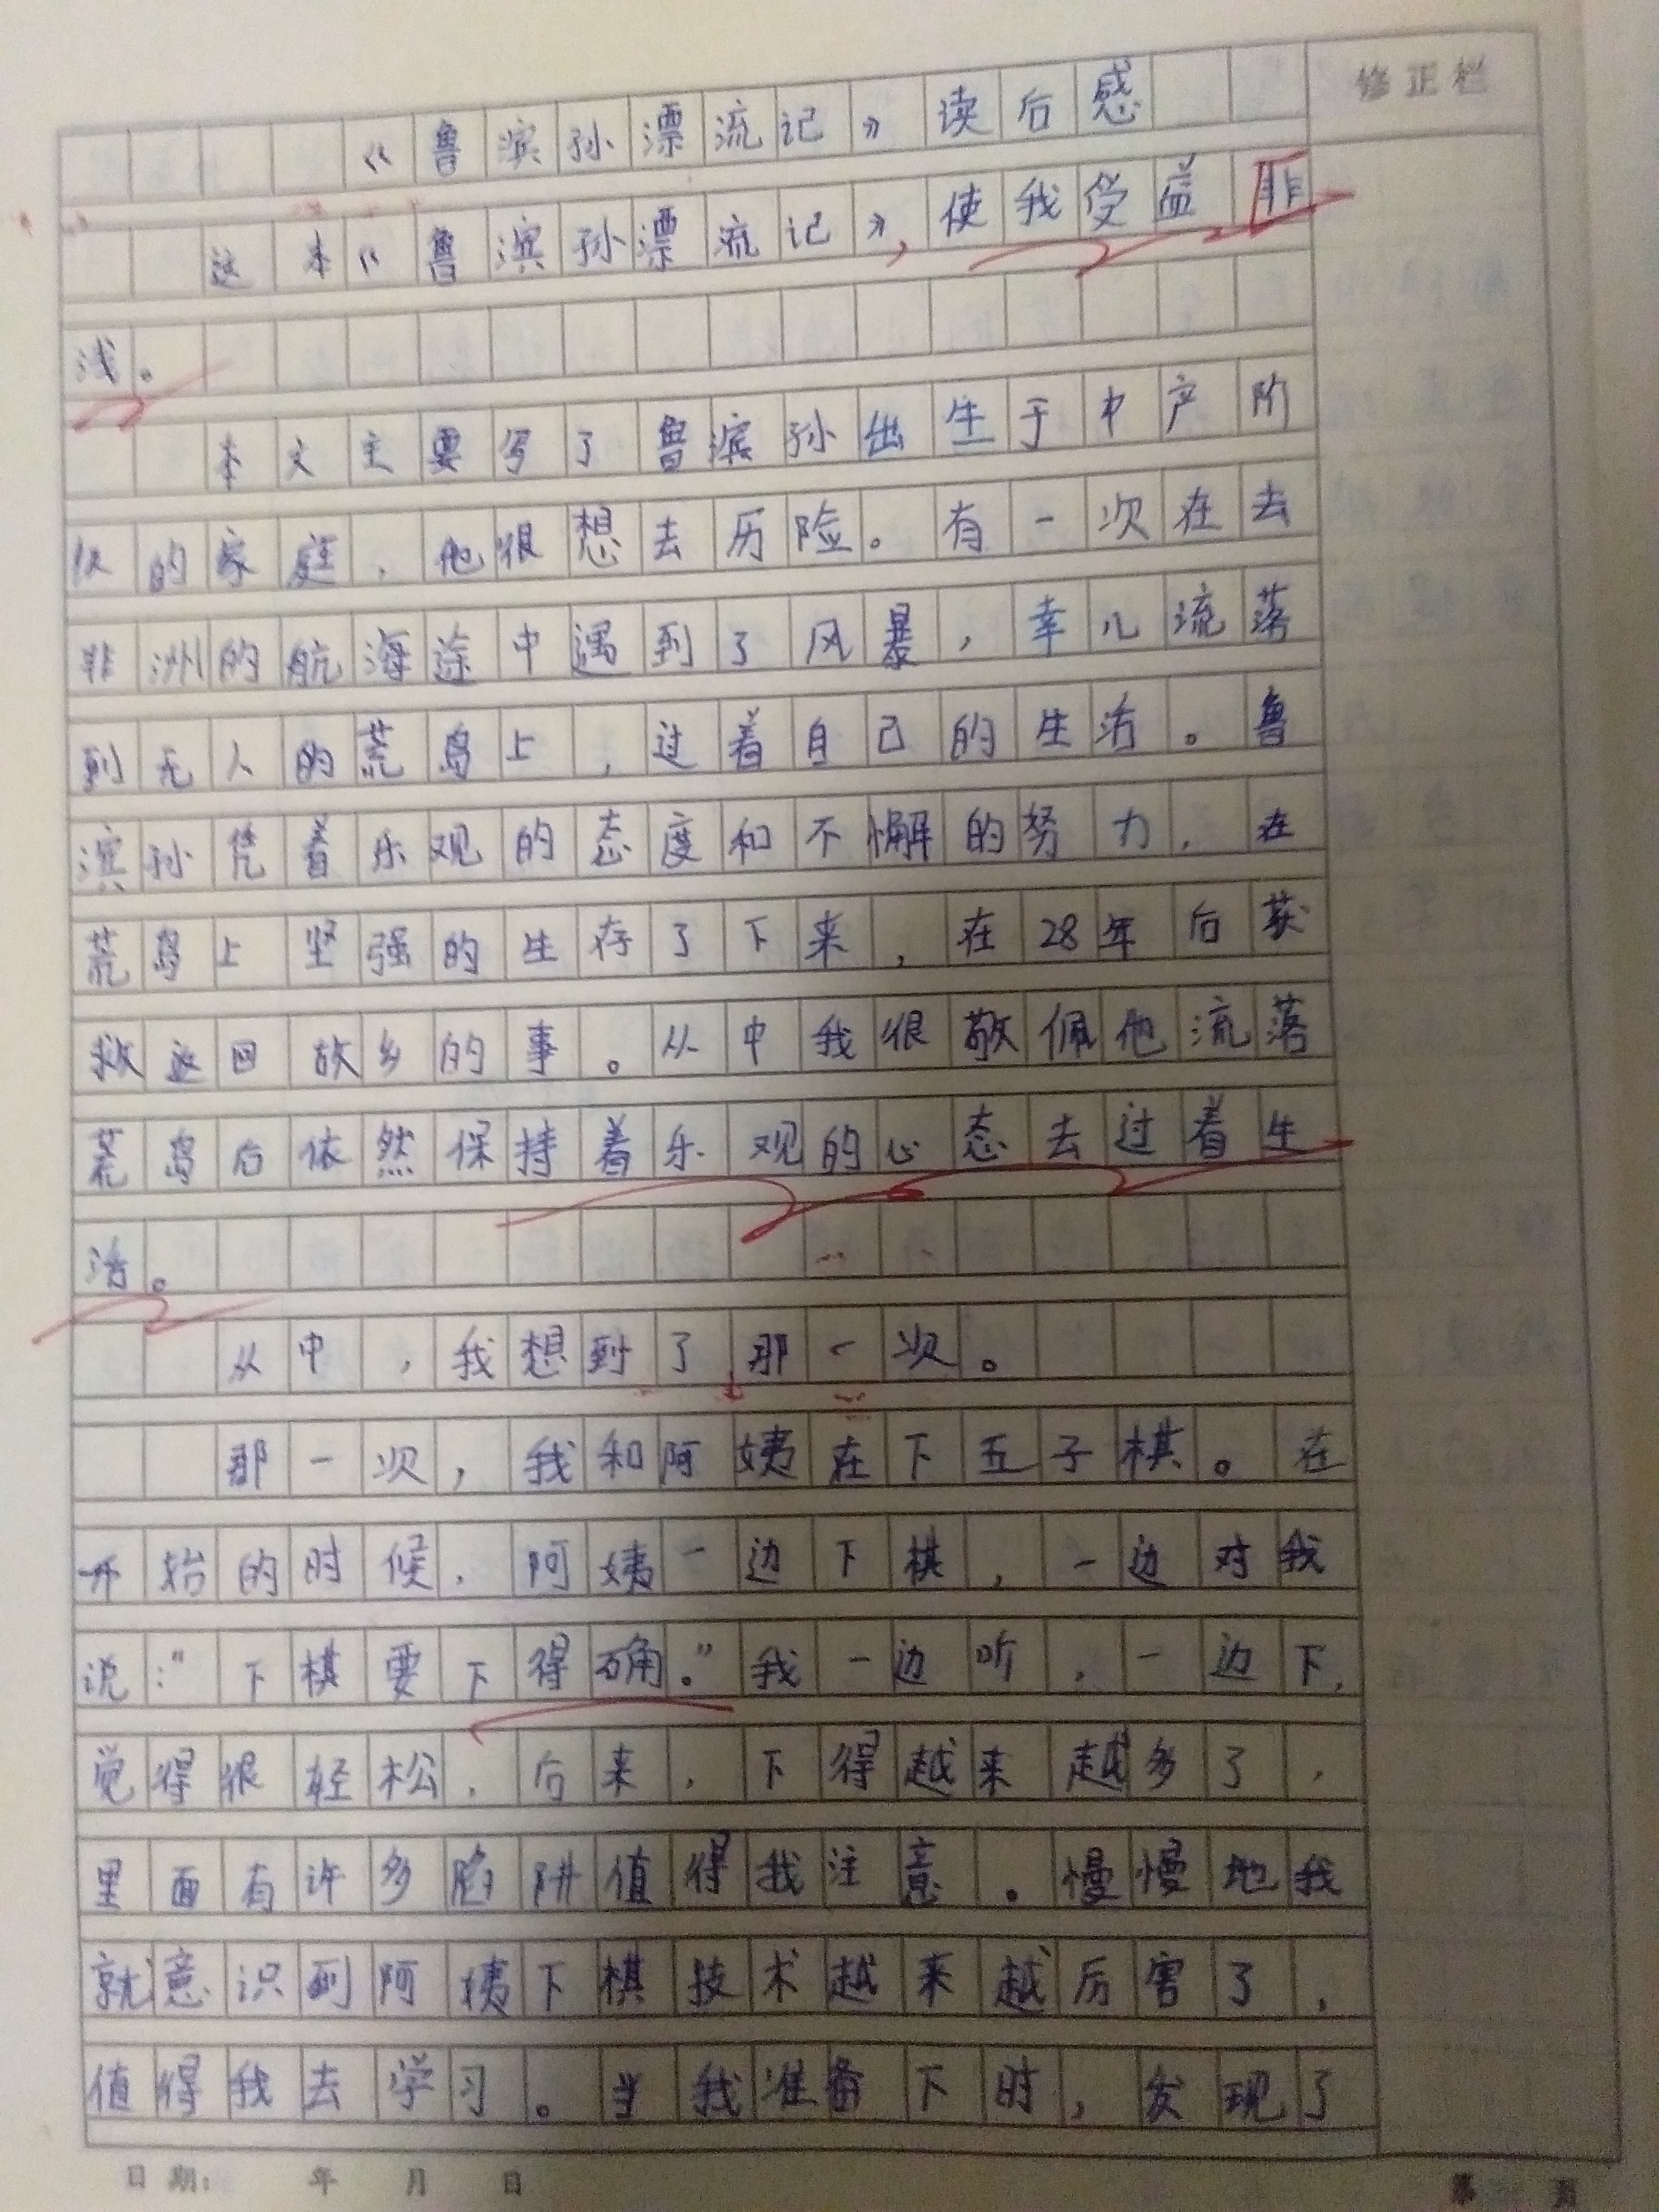 修正栏
《鲁滨孙漂流记》读后感
这本《鲁滨孙漂流记》，使我受益非
浅。
本文主要写了鲁滨孙出生于中产阶
级的家庭，他很想去历险。有一次在去
非洲的航海途中遇到了风暴，幸儿流落
到无人的荒岛上，过着自己的生活。鲁
滨孙凭着乐观的态度和不懈的努力，在
荒岛上坚强的生存了下来，在28年后获
救返回故乡的事。从中我很敬佩他流落
荒岛后依然保持着乐观的心态去过着生
活。
从中，我想到了那一次。
那一次，我和阿姨在下五子棋。在
开始的时候，阿姨一边下棋，一边对我
说："下棋要下得确。"我一边听，一边下，
觉得很轻松，后来，下得越来越多了，
里面有许多陷阱值得我注意。慢慢地我
就意识到阿姨下棋技术越来越厉害了，
值得我去学习。当我准备下时，发现了
日期： 年 月 日
第 页